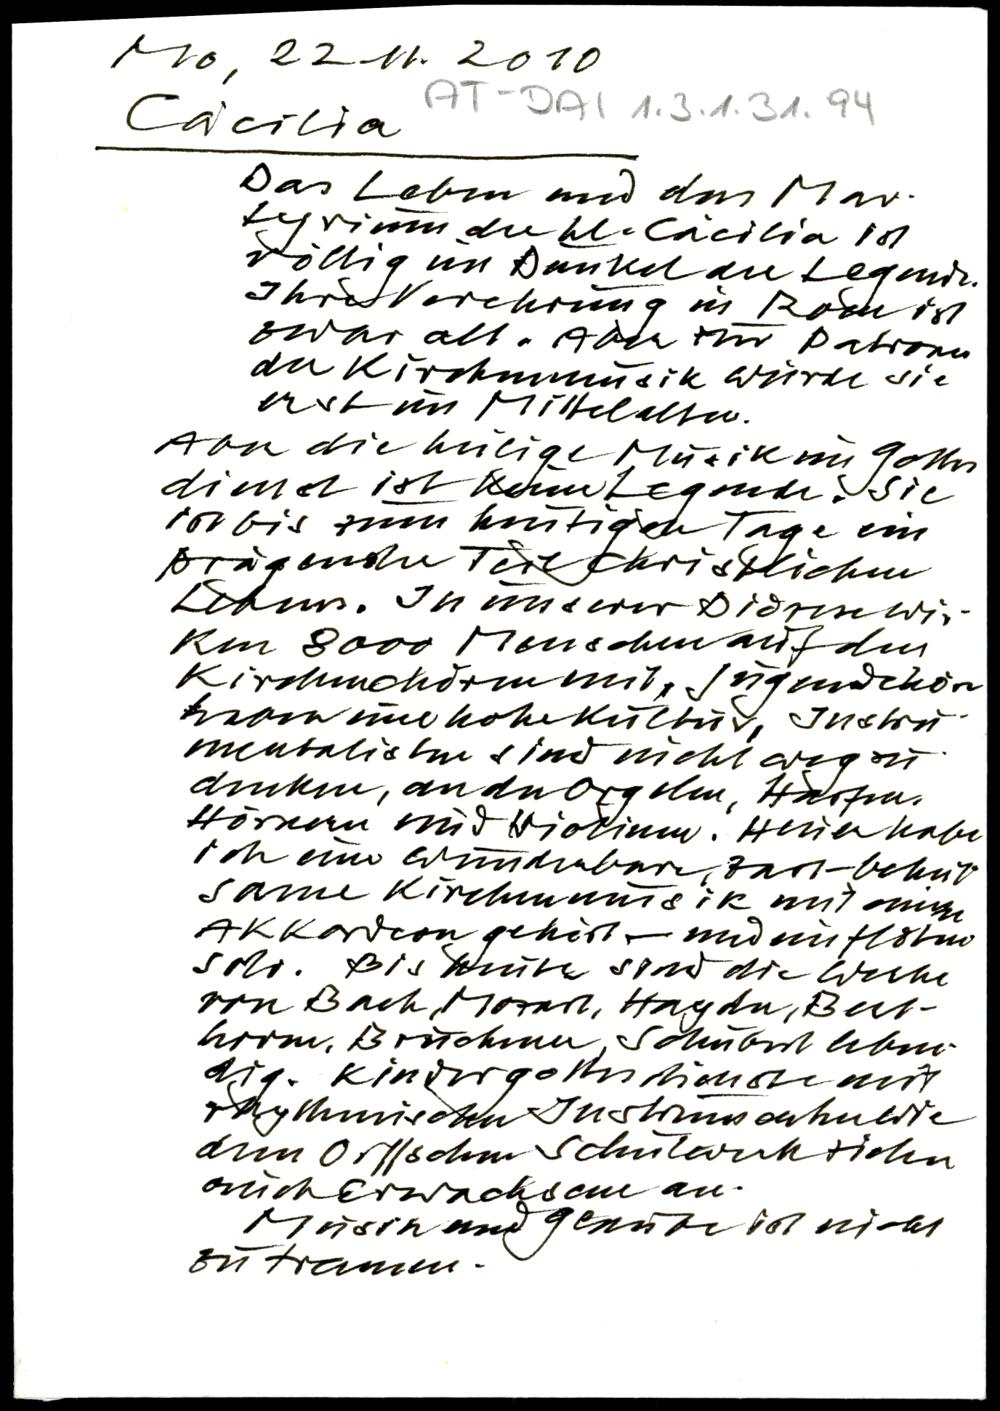 Mo, 22.11.2010
AT-DAI 1.3.1.31.94
Cäcilia
Das Leben und das Mar-
tyrium der hl. Cäcilia ist
völlig im Dunkel der Legende.
Ihre Verehrung in Rom ist
zwar alt. Aber zur Patronin
der Kirchenmusik wurde sie
erst im Mittelalter.
Aber die heilige Musik im Gottes
dienst ist keine Legende. Sie
ist bis zum heutigen Tage ein
prägender Teil christlichen
Lebens. In unserer Diözese wir-
ken 8000 Menschen auf den
Kirchenchören mit, Jugendchöre
haben eine hohe Kultur, Instru-
mentalisten sind nicht wegzu
denken, an den Orgeln, Harfen,
Hörnern und Violinen. Heuer habe
ich eine wunderbare, zart-behut
same Kirchenmusik mit einem
Akkordeon gehört – und mit Flöten
solo. Bis heute sind die Werke
von Bach, Mozart, Haydn, Beet-
hoven, Bruckner, Schubert leben-
dig. Kindergottesdienste mit
rhythmischen Instrumenten wie
dem Orffschen Schulwerk ziehen
auch Erwachsene an.
Musik und Glaube ist nicht
zu trennen.